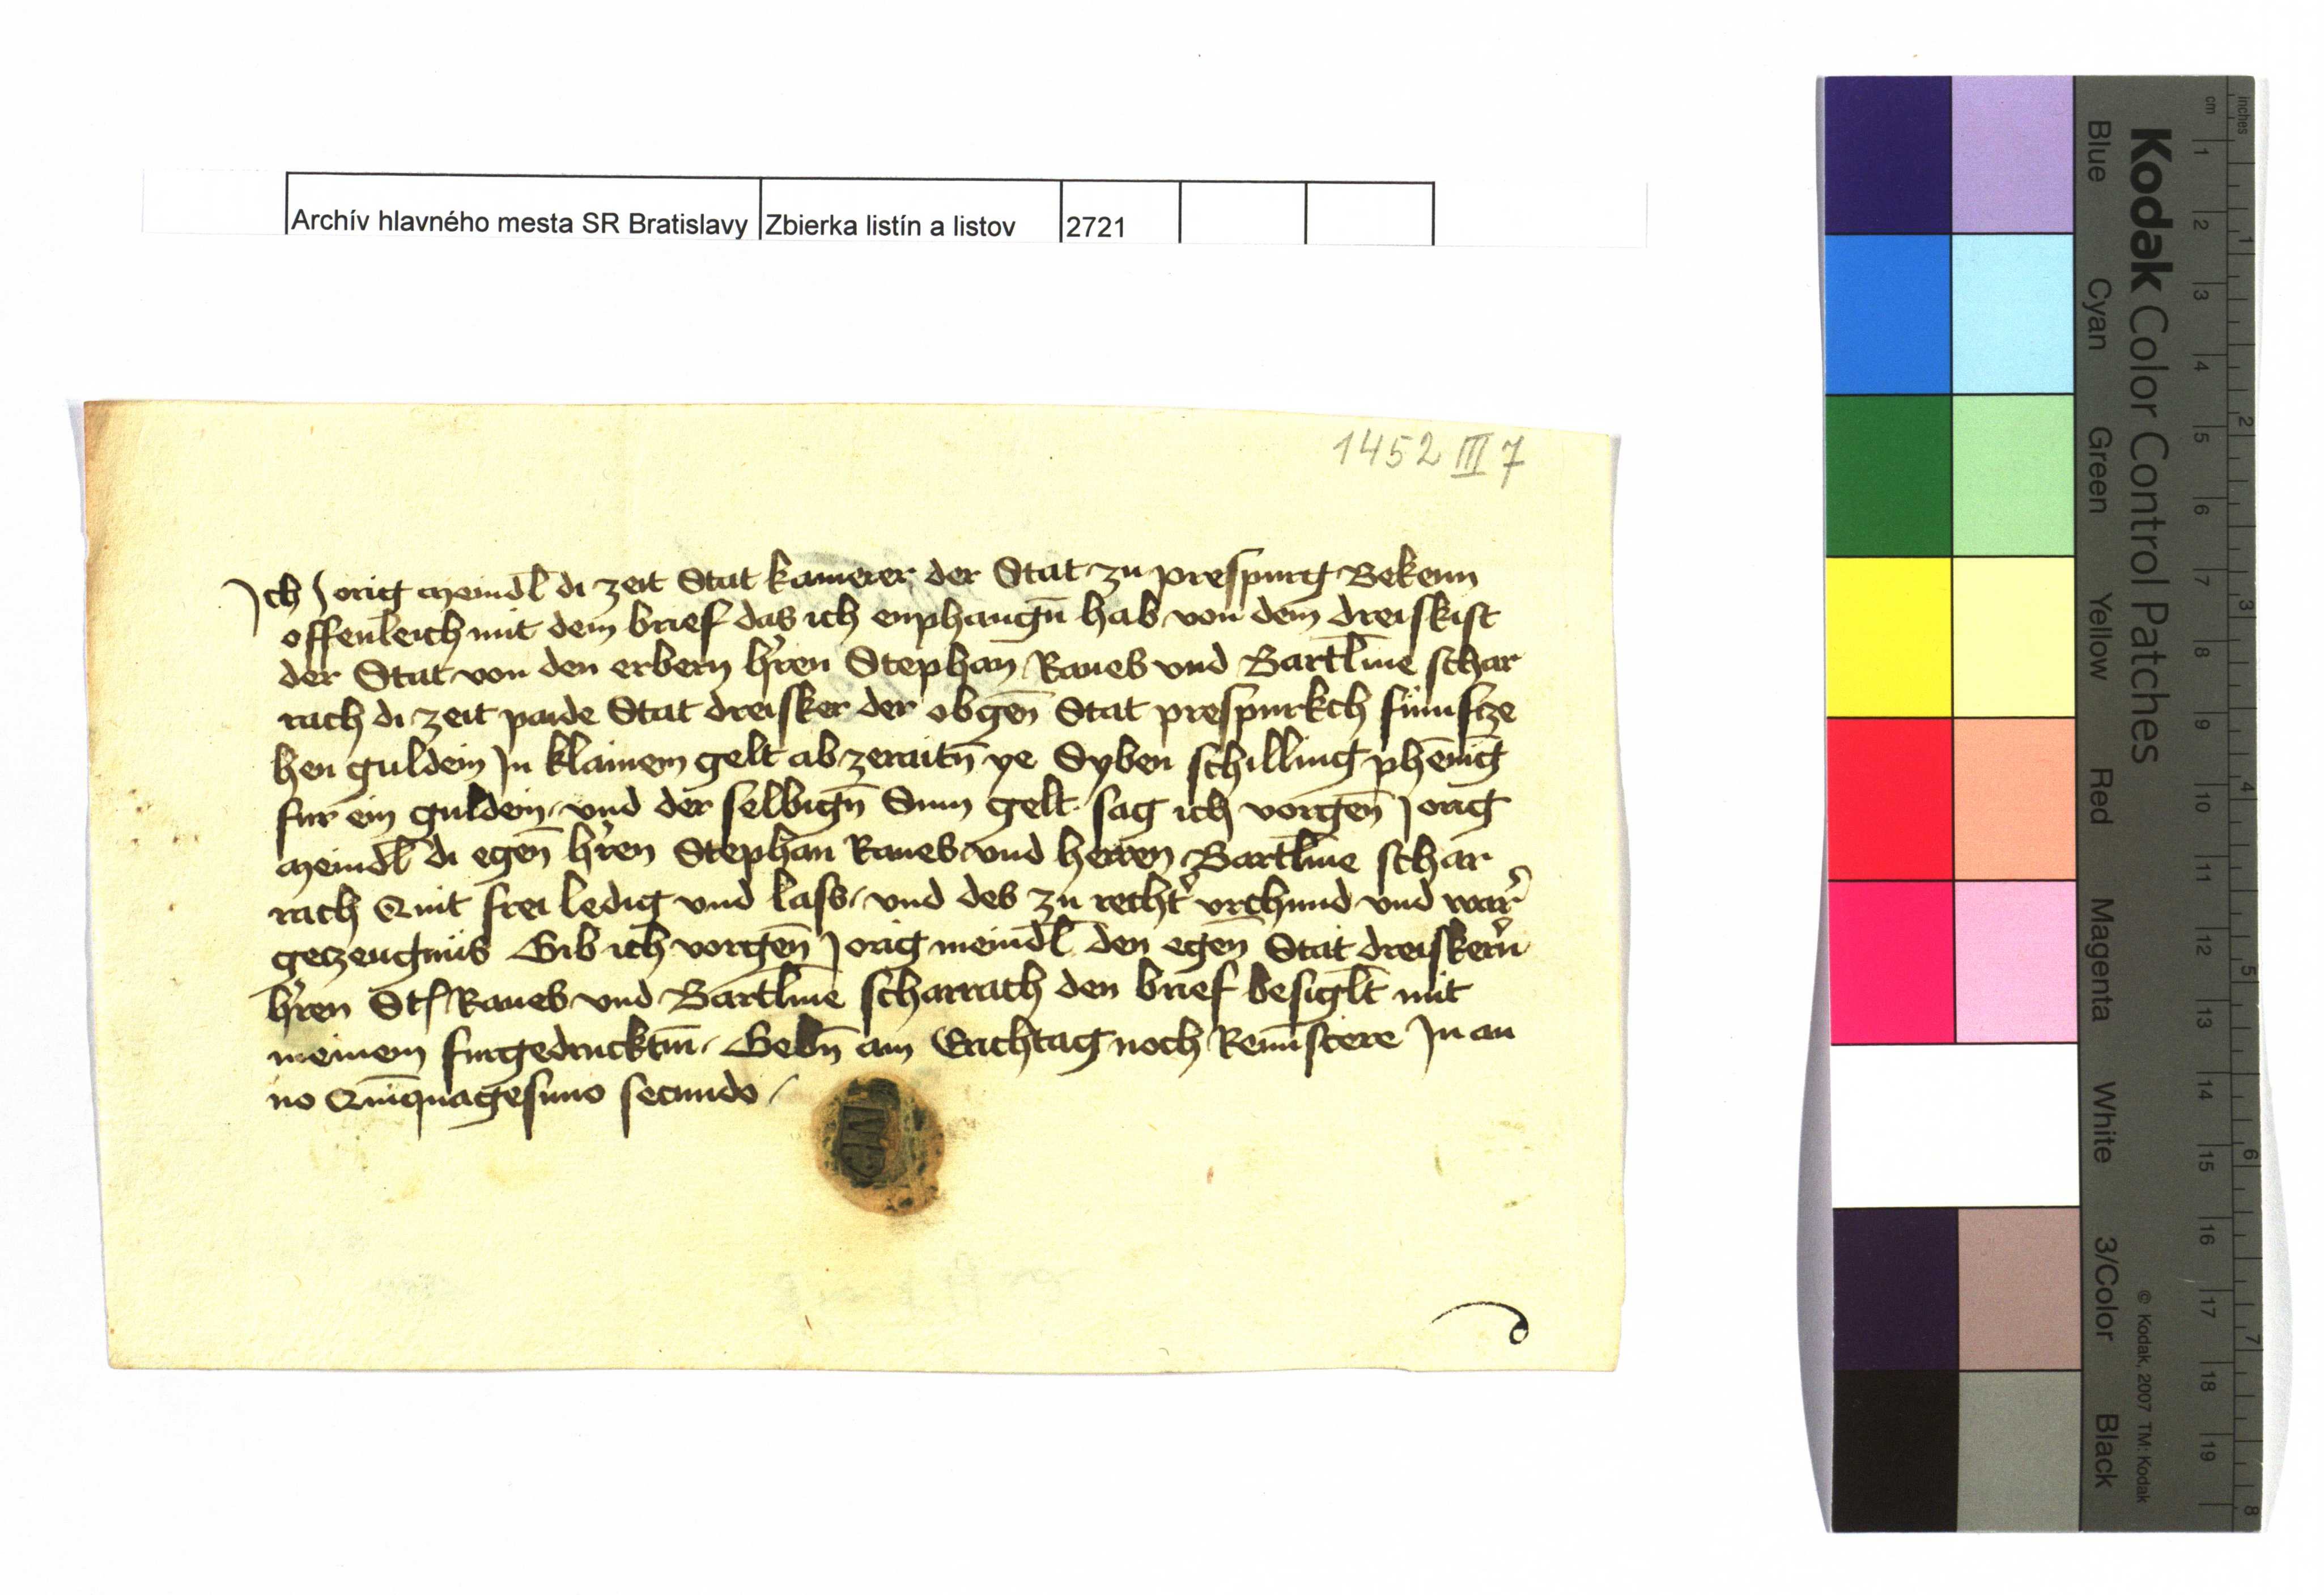 Archív hlavného mesta SR Bratislavy Zbierka listín a listov 2721
1452 III 7
Ich Jorig meindl̄ di zeit Stat kamerer der Stat zu prespurg Bekenn
offenleich mit dem brief das ich enphangn̄ hab von dem dreiskist
der Stat von den erbern hʼren Stephan Raneb und Bartl̄me schar
rach di zeit paide Stat dreisker der obgen̄ Stat prespurkch fümfcze
hen guldein In klainem gelt ab zeraitn̄ ye Syben schilling phēniḡ
fur ein guldein und der selbign̄ Sum gelt sag ich vorgen̄ Jorig
meindl̄ di egen̄ hʼren Stephan Raneb und herren Bartl̄me schar
rach Quit frei ledig und lass und des zu rechtʼ vrchund und warʼ
geczeugnüs Gib ich vorgen̄ Jorig meindl̄ den egen̄ Stat dreiskerʼn
hʼren Stf Raneb und Bartl̄me scharrach den brief besiglt̄ mit
meinem furgedrucktm̄ Gebn̄ am Erichtag noch Remīstere In an
no Quīquagesimo secundo
Kodak Color Control Patches
Blue Cyan Green Yellow Red Magenta White 3/Color Black
© Kodak, 2007 TM: Kodak
cm 1 2 3 4 5 6 7 8 9 10 11 12 13 14 15 16 17 18 19
inches 1 2 3 4 5 6 7 8